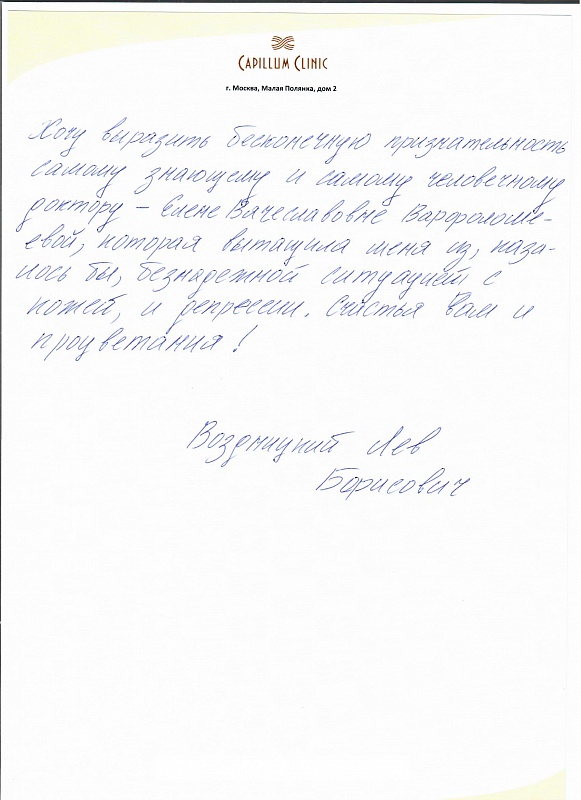 CAPILLUM CLINIC
г. Москва, Малая Полянка, дом 2
Хочу выразить бесконечную признательность
самому знающему и самому человечному
доктору – Елене Вячеславовне Варфоломе-
евой, которая вытащила меня из, каза-
лось бы, безнадежной ситуацией с
кожей, и депрессии. Счастья Вам и
процветания!
Лев
Борисович